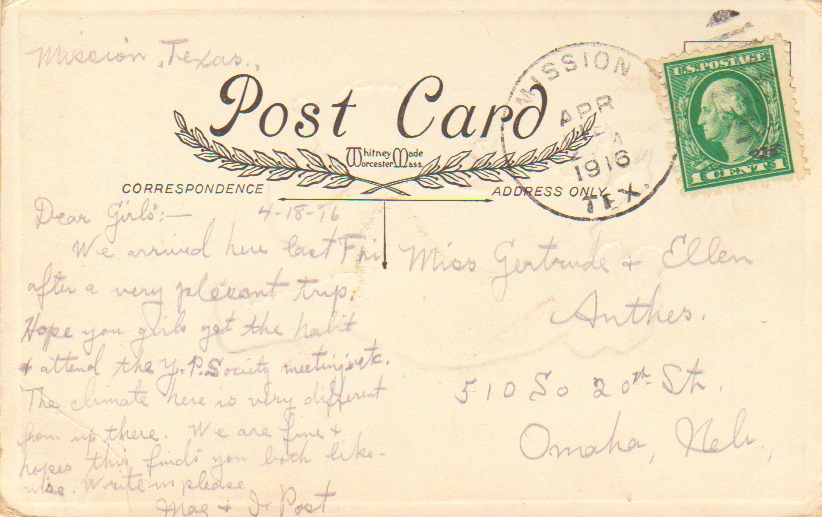 Mission, Texas.,
Post Card
Whitney Made
Worcester Mass.
MISSION
APR
1916
TEX.
U.S. POSTAGE
1 CENT 1
CORRESPONDENCE
ADDRESS ONLY
Dear Girls:— 4-18-16
We arrived here last Fri
after a very pleasant trip.
Hope you girls get the habit
& attend the Y.P. Society meetings etc.
The climate here is very different
from up there. We are fine &
hopes this finds you both like-
wise. Write us please
Mae & I. Post.
Miss Gertrude & Ellen
Anthes.
510 So 20th St.
Omaha, Nebr.,